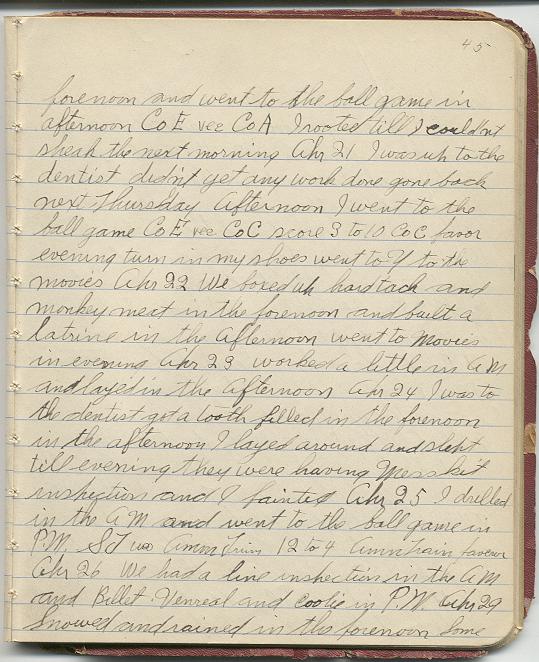 45
forenoon and went to the ball game in
afternoon Co E vee Co A I rooted till I couldn't
speak the next morning Apr 21 I was up to the
dentist didn't get any work done gone back
next Thursday Afternoon I went to the
ball game Co E vee Co C score 3 to 10 Co C favor
evening turn in my shoes went to Y to the
movies Apr 22 We boxed up hard tack and
monkey meat in the forenoon and built a
latrine in the Afternoon went to Movies
in evening Apr 23 worked a little in AM
and layed in the Afternoon Apr 24 I was to
the dentist got a tooth filled in the forenoon
in the afternoon I layed around and slept
till evening they were having Mess kit
inspection and I fainted Apr 25 I drilled
in the AM and went to the ball game in
P.M. Amm Train 12 to 4 Amm Train favor
Apr 26 We had a line inspection in the AM
and Billet Venreal and cootie in P.M. Apr 29
Snowed and rained in the forenoon Some